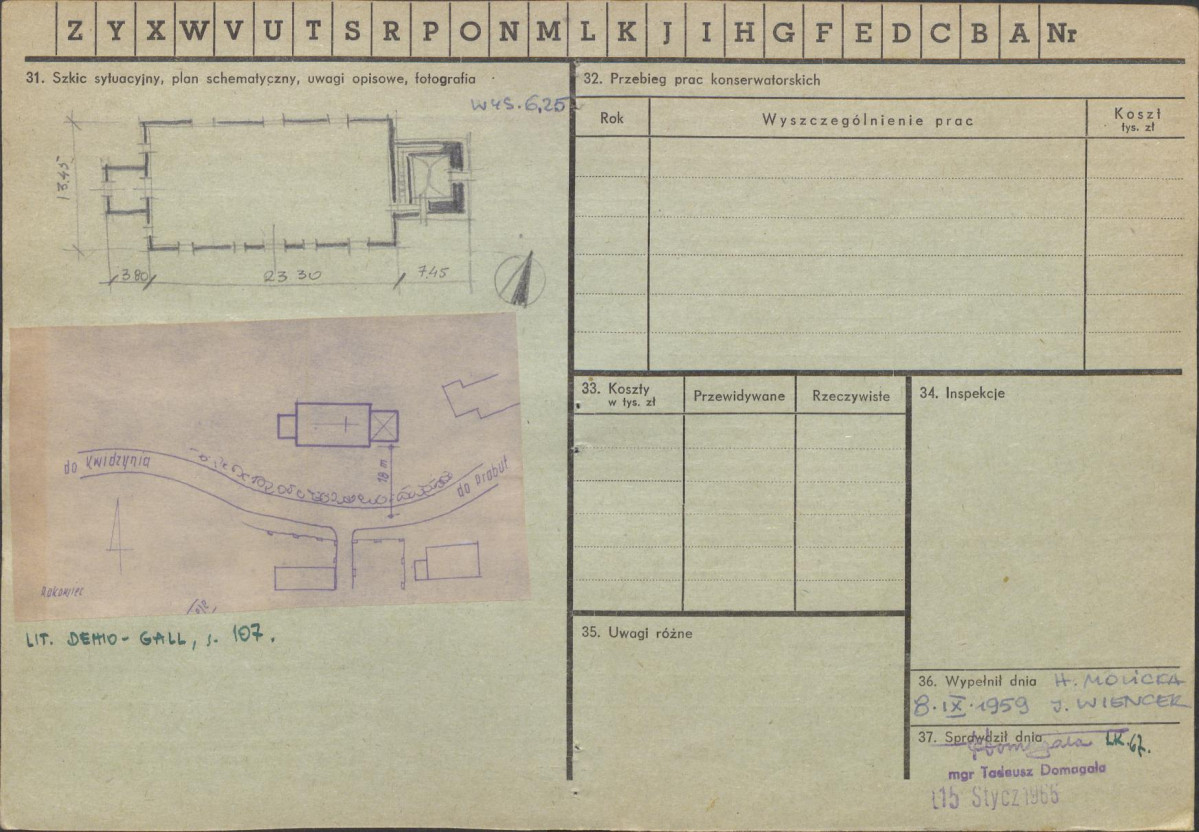 Z Y X W V U T S R P O N M L K J I H G F E D C B A Nr
31. Szkic sytuacyjny, plan schematyczny, uwagi opisowe, fotografia
wys. 6,25
13,45
3.80 23.30 7.45
do Kwidzynia
18 m
do Prabut
Rakowiec
LIT. DEHIO - GALL, s. 107.
32. Przebieg prac konserwatorskich
Rok Wyszczególnienie prac Koszt
tys. zł
33. Koszty
w tys. zł
Przewidywane Rzeczywiste
34. Inspekcje
35. Uwagi różne
36. Wypełnił dnia H. MOLICKA
8.IX.1959 J. WIENCEK
37. Sprawdził dnia
Domagała LK.67.
mgr Tadeusz Domagała
15 Stycz 1966